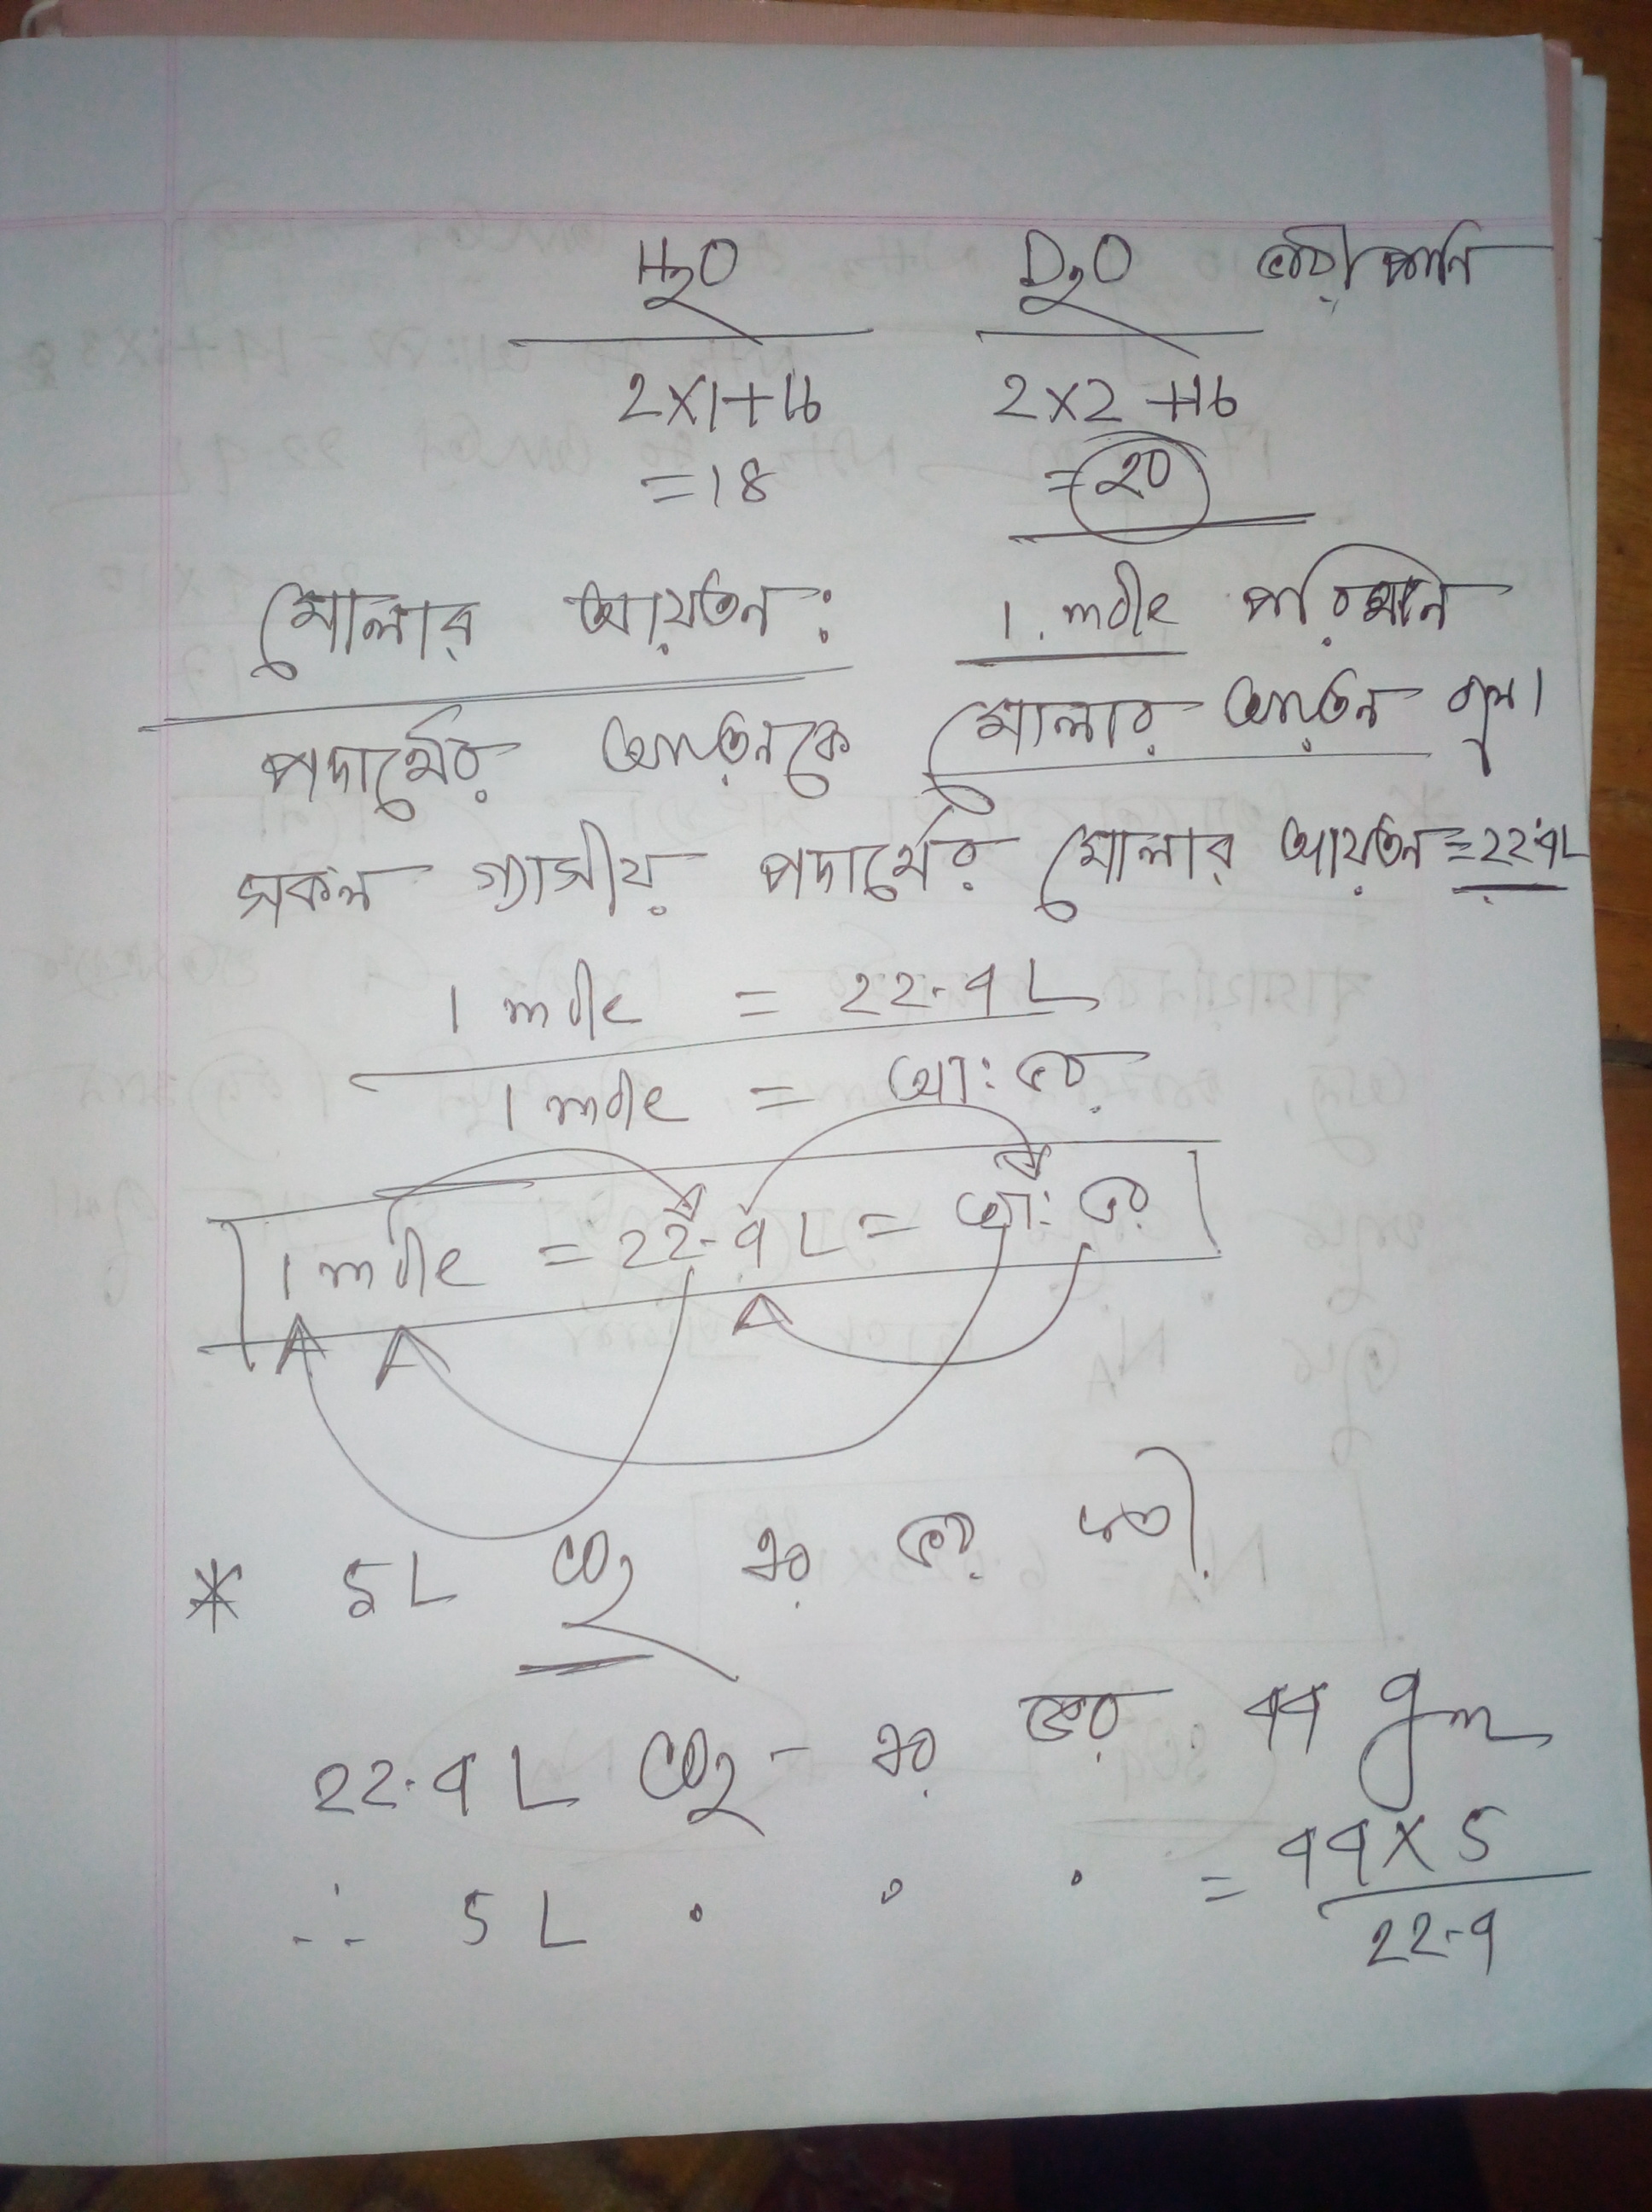 H₂O D₂O ভারী পানি
2×1+16 2×2+16
=18 =20
মোলার আয়তন: 1 mole পরিমান
পদার্থের আয়তনকে মোলার আয়তন বলে।
সকল গ্যাসীয় পদার্থের মোলার আয়তন=22.4L
1 mole = 22.4 L
1 mole = আ: ভর
1 mole = 22.4 L = আ: ভর
* 5L CO₂ এর ভর কত
22.4 L CO₂ - এর ভর 44 gm
∴ 5 L " " " = 44×5
22.4